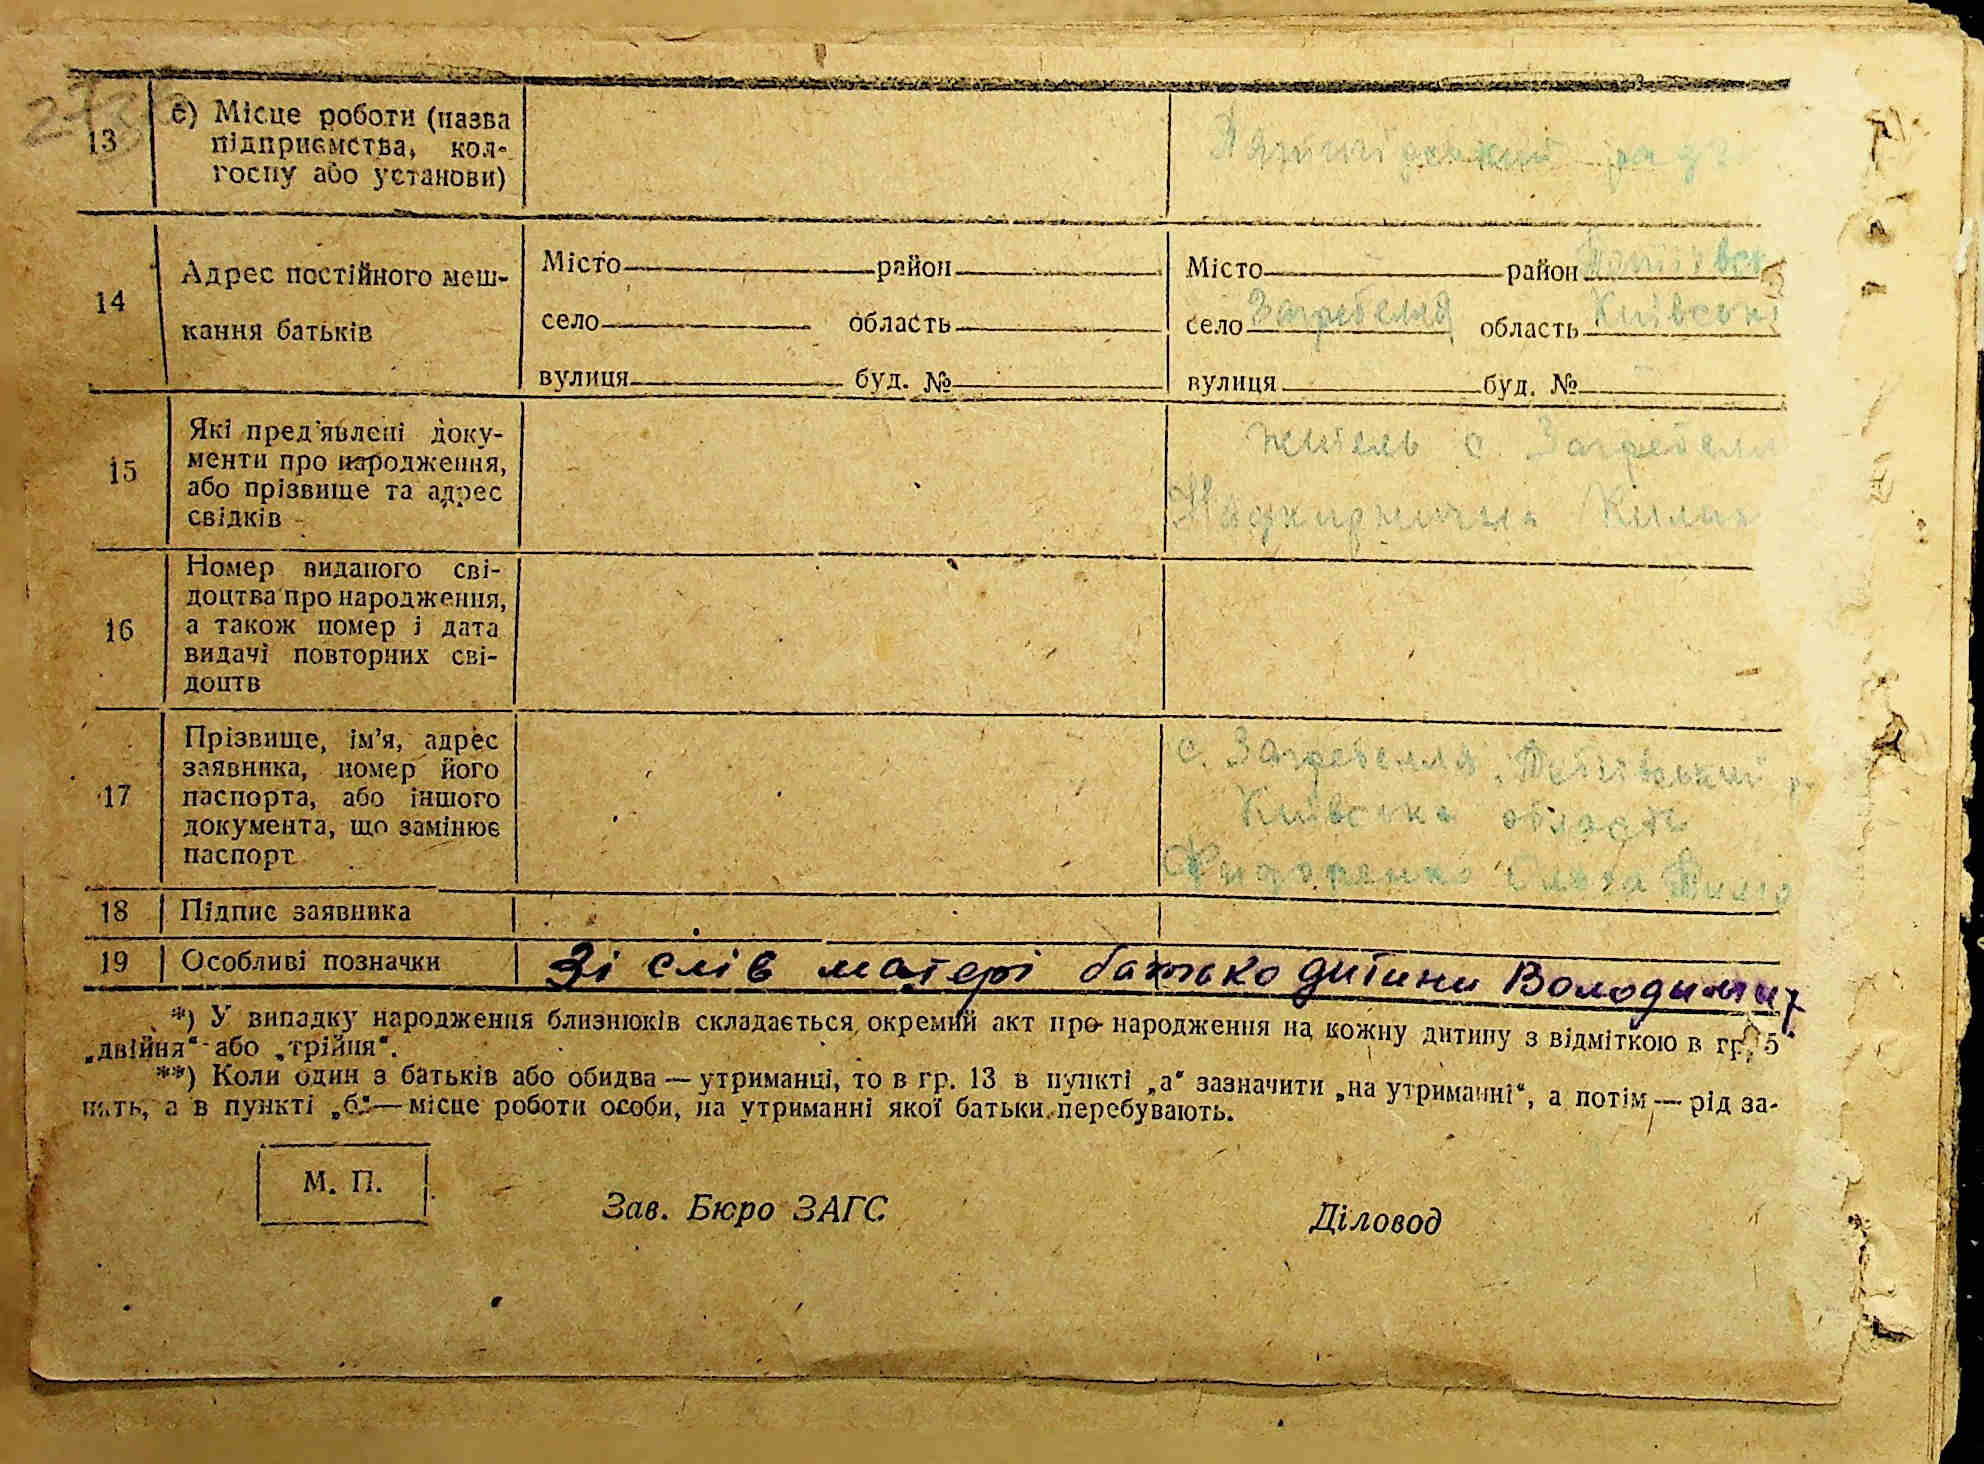 13
є) Місце роботи (назва
підприємства, кол-
госпу або установи)
14
Адрес постійного меш-
кання батьків
Місто район
село область
вулиця буд. №
Місто район
село Загребелля область Київськ
вулиця буд. №
15
Які пред'явлені доку-
менти про народження,
або прізвище та адрес
свідків
житель с. Загребелля
16
Номер виданого сві-
доцтва про народження,
а також номер і дата
видачі повторних сві-
доцтв
17
Прізвище, ім'я, адрес
заявника, номер його
паспорта, або іншого
документа, що замінює
паспорт
с. Загребелля, Тетіївський р.
Київська область
Ольга
18 Підпис заявника
19 Особливі позначки
Зі слів матері батько дитини Володимир
*) У випадку народження близнюків складається окремий акт про народження на кожну дитину з відміткою в гр. 5
„двійня“ або „трійня“.
**) Коли один з батьків або обидва — утриманці, то в гр. 13 в пункті „а“ зазначити „на утриманні“, а потім — рід за-
нять, а в пункті „б“ — місце роботи особи, на утриманні якої батьки перебувають.
М. П.
Зав. Бюро ЗАГС
Діловод